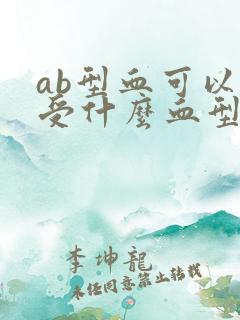 ab型血可以
受什麼血型
李坤龍
未经同意禁止转载